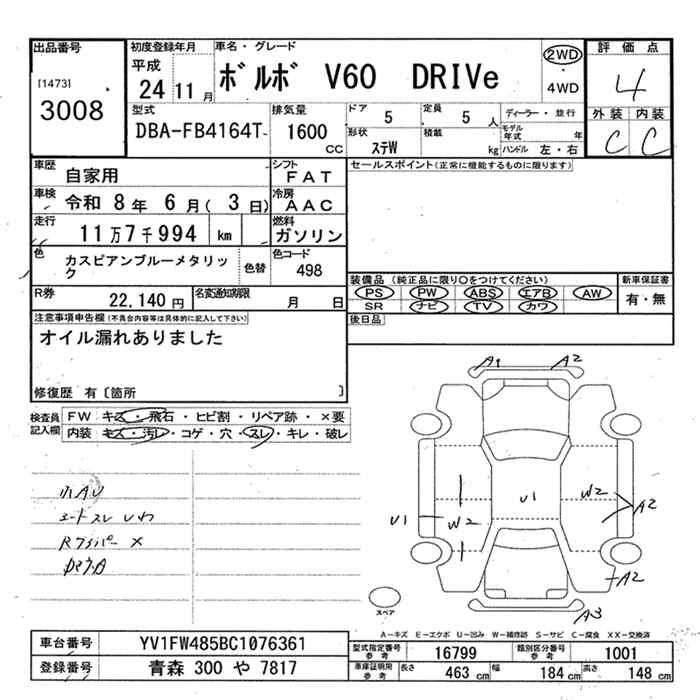 出品番号
[1473]
3008
初度登録年月
平成
24 11 月
車名・グレード
ボルボ V60 DRIVe
2WD
・
4WD
評価点
4
外装 内装
C C
型式
DBA-FB4164T
排気量
1600 CC
ドア
5
定員
5 人
形状
ステW
積載
kg
ディーラー・並行
モデル年式 年
ハンドル 左・右
車歴
自家用
シフト
FAT
車検
令和 8 年 6 月( 3 日)
冷房
AAC
走行
11万7千994 km
燃料
ガソリン
色
カスピアンブルーメタリック
色替
色コード
498
R券
22,140 円
名変通知期限
月 日
セールスポイント(正常に機能するものに限ります)
装備品 (純正品に限り○をつけてください)
PS PW ABS エアB AW
SR ナビ TV カワ
新車保証書
有・無
後日品
注意事項申告欄(不具合内容等は具体的に記入して下さい)
オイル漏れありました
修復歴 有〔箇所 〕
検査員記入欄
FW キズ・飛石・ヒビ割・リペア跡・×要
内装 キズ・汚レ・コゲ・穴・スレ・キレ・破レ
小AU
シートスレ シワ
Rワイパー ×
A1 A2
U1
U1
W2
W2
A2
A2
A3
スペア
A-キズ E-エクボ U-凹み W-補修跡 S-サビ C-腐食 XX-交換済
車台番号
YV1FW485BC1076361
登録番号
青森 300 や 7817
型式指定番号 参考
16799
類別区分番号 参考
1001
車庫証明用 参考
長さ 463 cm
幅 184 cm
高さ 148 cm